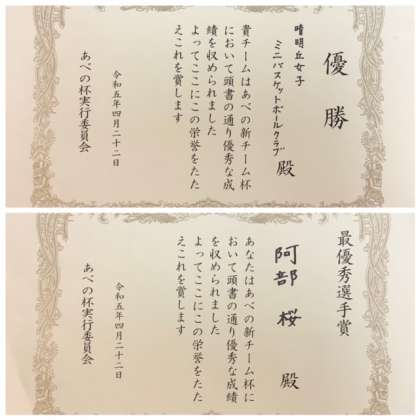 優勝
晴明丘女子
ミニバスケットボールクラブ殿
貴チームはあべの新チーム杯
において頭書の通り優秀な成
績を収められました
よってここにこの栄誉をたた
えこれを賞します
令和五年四月二十二日
あべの杯実行委員会
最優秀選手賞
阿部 桜 殿
あなたはあべの新チーム杯に
おいて頭書の通り優秀な成績
を収められました
よってここにこの栄誉をたた
えこれを賞します
令和五年四月二十二日
あべの杯実行委員会